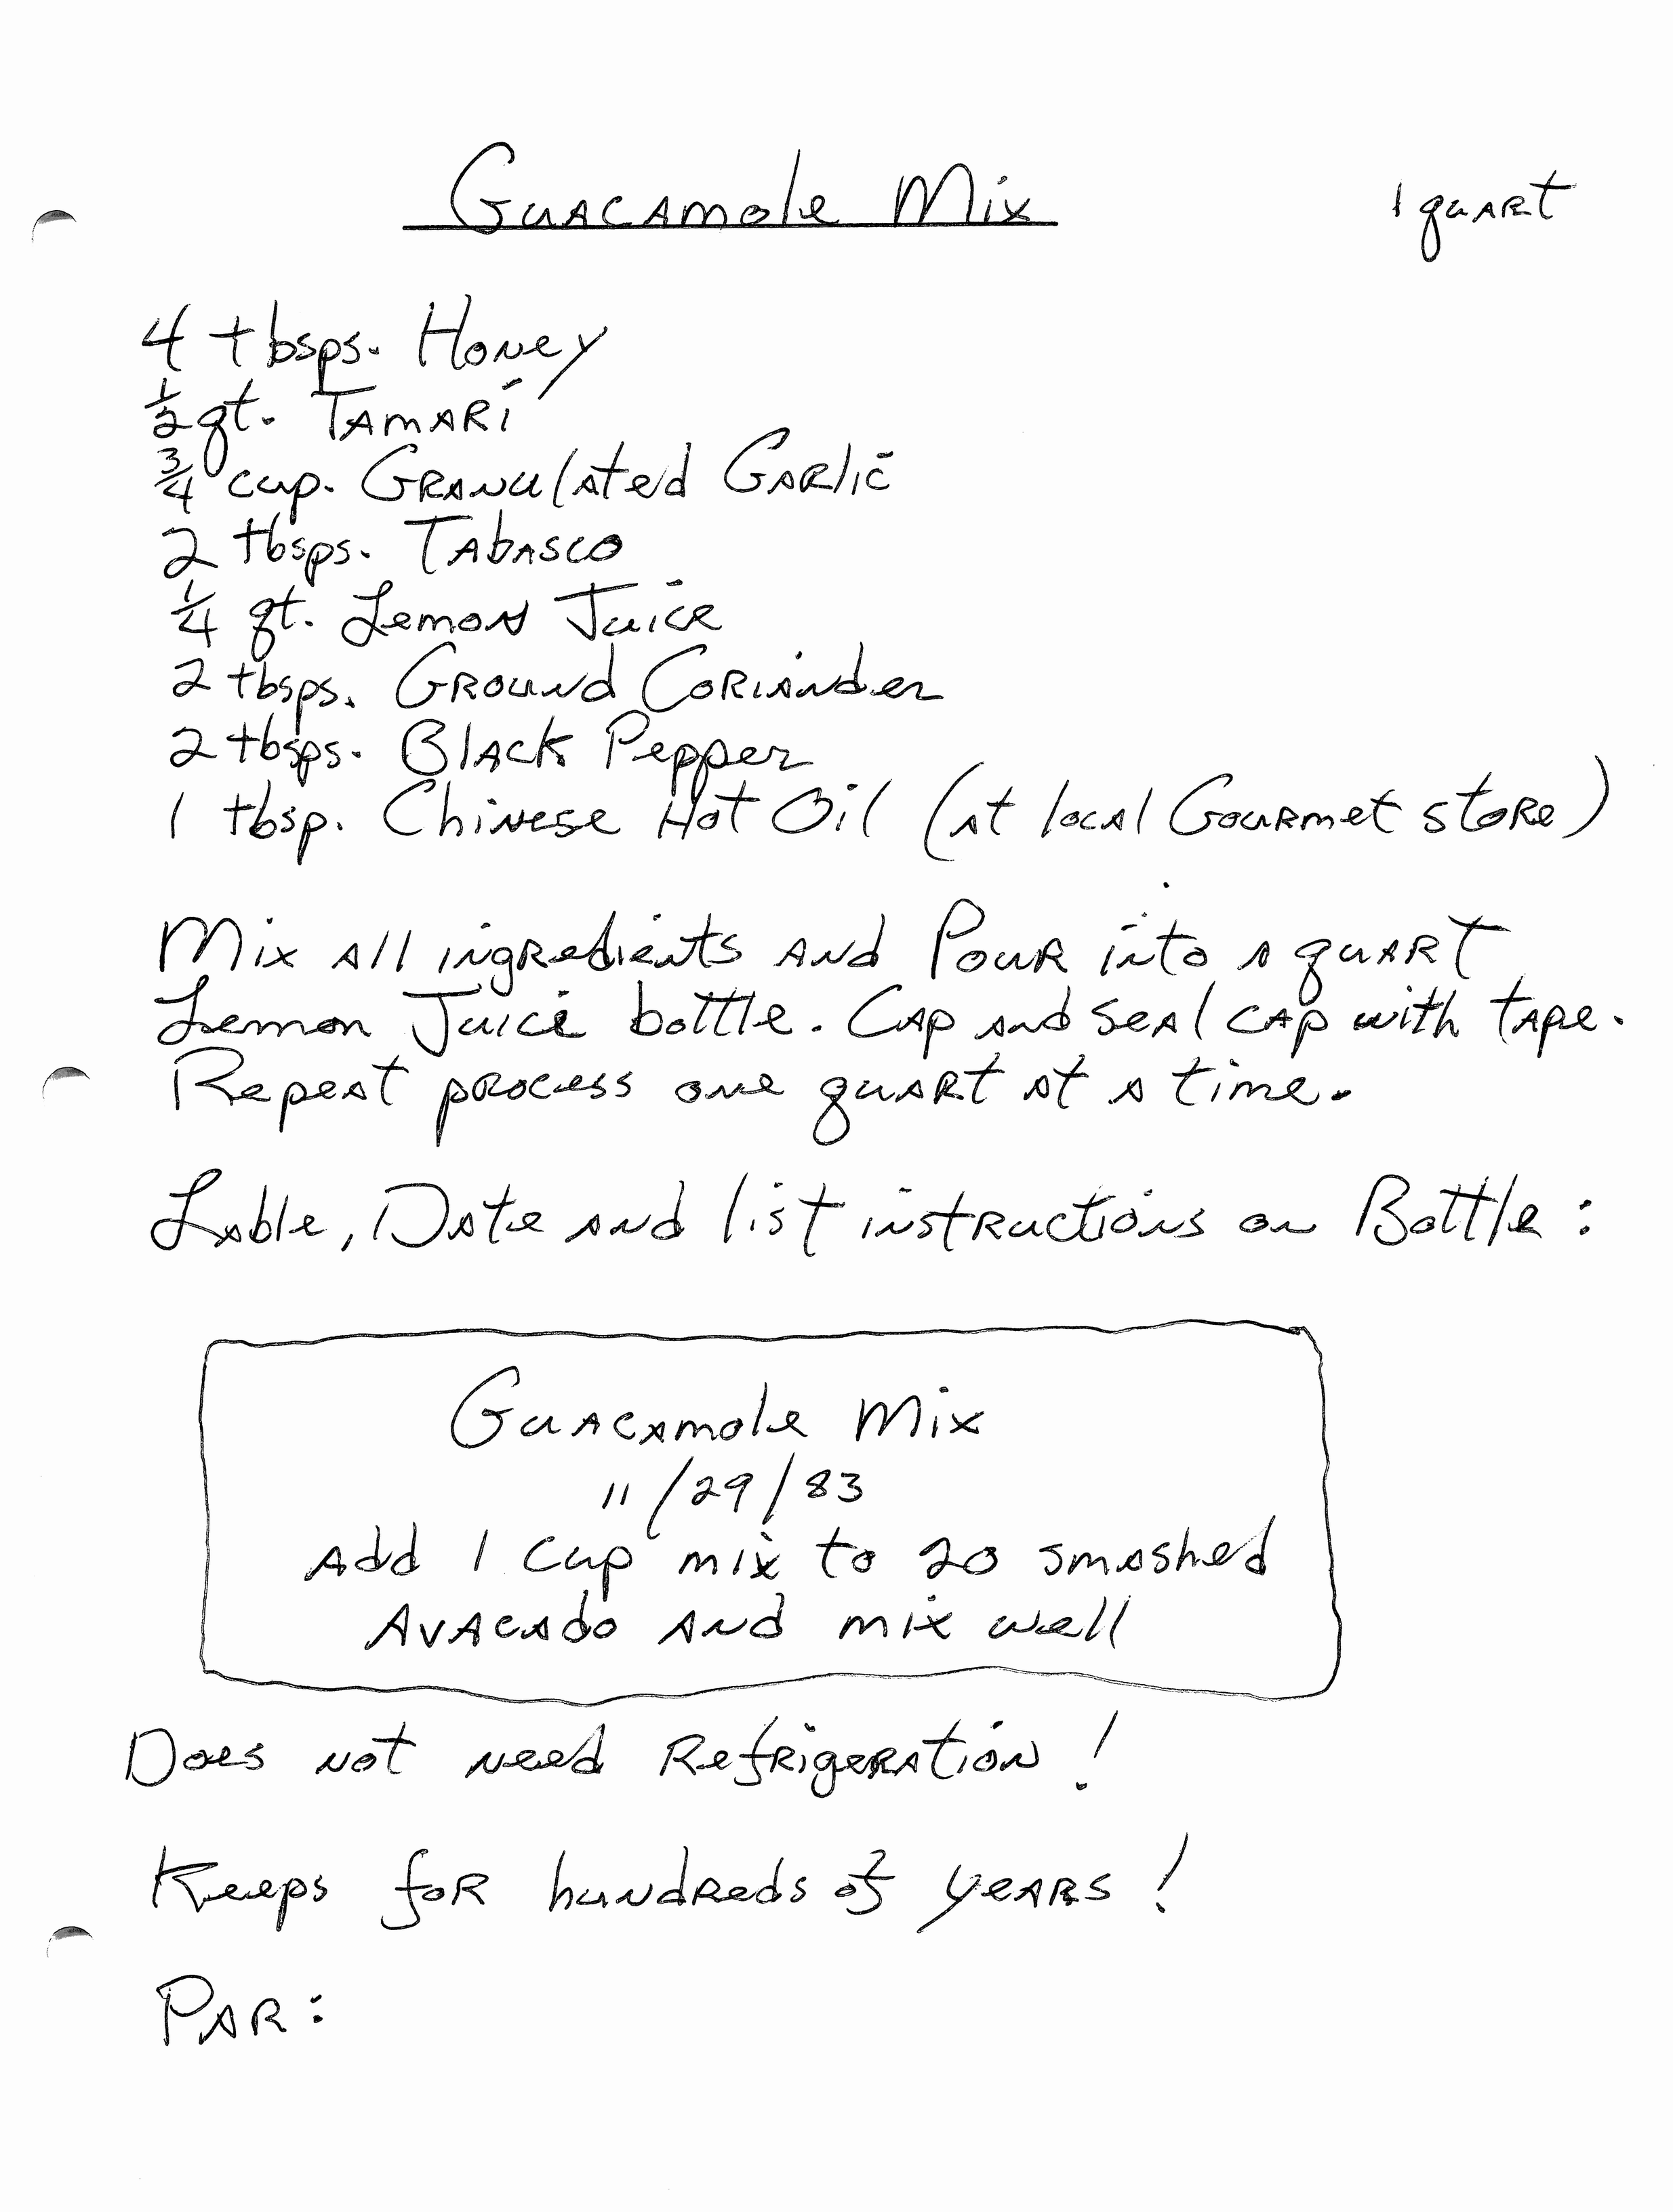 Guacamole Mix 1 quart
4 tbsps. Honey
1/2 qt. Tamari
3/4 cup. Granulated Garlic
2 tbsps. Tabasco
1/4 qt. Lemon Juice
2 tbsps. Ground Coriander
2 tbsps. Black Pepper
1 tbsp. Chinese Hot Oil (at local Gourmet store)
Mix all ingredients and Pour into a quart
Lemon Juice bottle. Cap and seal cap with tape.
Repeat process one quart at a time.
Lable, Date and list instructions on Bottle:
Guacamole Mix
11/29/83
Add 1 Cup mix to 20 smashed
Avacado and mix well
Does not need Refrigeration!
Keeps for hundreds of years!
Par: